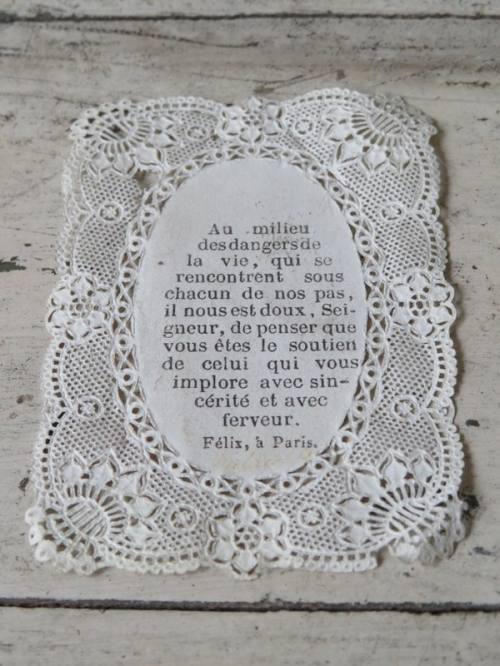 Au milieu
des dangers de
la vie, qui se
rencontrent sous
chacun de nos pas,
il nous est doux, Sei-
gneur, de penser que
vous êtes le soutien
de celui qui vous
implore avec sin-
cérité et avec
ferveur.
Félix, à Paris.